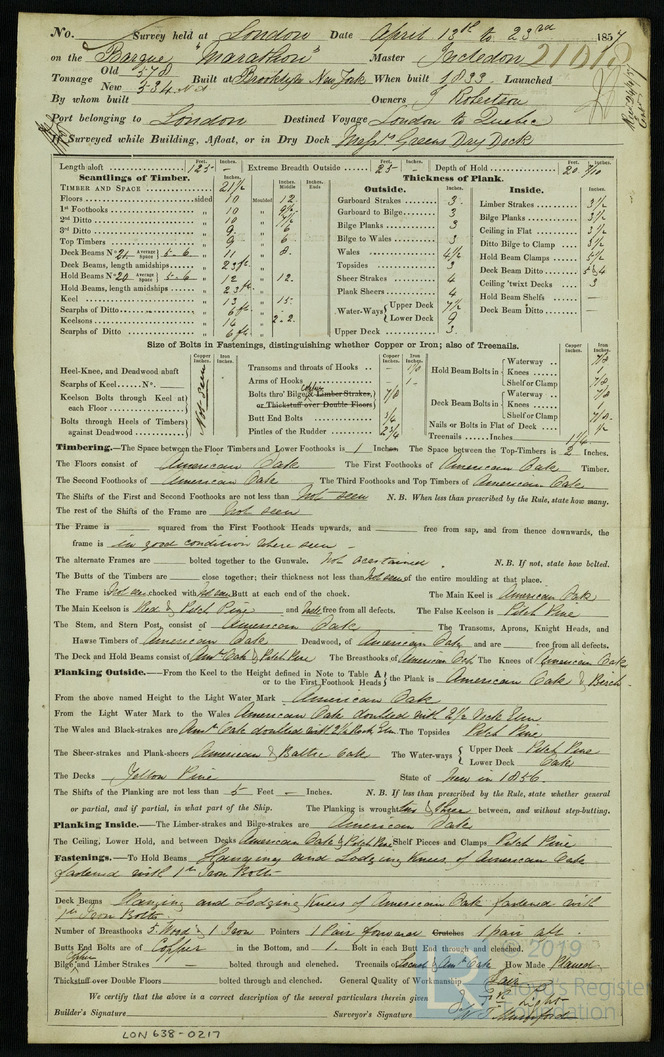 No. Survey held at London Date April 13th to 23rd 1857
on the Barque "Marathon" Master Incledon
Tonnage Old 578 New 584 Built at Brooklyn New York When built 1833 Launched
By whom built Owners J Robertson
Port belonging to London Destined Voyage London to Quebec
If Surveyed while Building, Afloat, or in Dry Dock Messrs Greens Dry Dock
Length aloft 125 - Extreme Breadth Outside 25 - Depth of Hold 20 7/10
Scantlings of Timber.
TIMBER AND SPACE 21 1/2
Floors sided 10 Moulded 12
1st Foothooks 10 " 9 1/2
2nd Ditto 10 " 7 1/2
3rd Ditto 9 " 6
Top Timbers 9 " 6
Deck Beams No. 21 Average Space 5-6 11 " 8
Deck Beams, length amidships 23 ft
Hold Beams No. 20 Average Space 5-6 12 " 12
Hold Beams, length amidships 23 ft
Keel 13 " 15
Scarphs of Ditto 6 ft
Keelsons 14 " 2-2
Scarphs of Ditto 6 ft
Thickness of Plank.
Outside.
Garboard Strakes 3
Garboard to Bilge 3
Bilge Planks 3
Bilge to Wales 3
Wales 4 1/2
Topsides 3
Sheer Strakes 4
Plank Sheers 4
Water-Ways Upper Deck 7 1/2
Lower Deck 9
Upper Deck 3
Inside.
Limber Strakes 3 1/2
Bilge Planks 3 1/2
Ceiling in Flat 3 1/2
Ditto Bilge to Clamp 3 1/2
Hold Beam Clamps 5 1/2
Deck Beam Ditto 5 & 4
Ceiling 'twixt Decks 3
Hold Beam Shelfs —
Deck Beam Ditto —
Size of Bolts in Fastenings, distinguishing whether Copper or Iron; also of Treenails.
Heel-Knee, and Deadwood abaft
Scarphs of Keel No.
Keelson Bolts through Keel at each Floor
Bolts through Heels of Timbers against Deadwood
Not seen
Transoms and throats of Hooks
Arms of Hooks
Bolts thro' Bilge & Limber Strakes, 7/8
or Thickstuff over Double Floors
Butt End Bolts
Pintles of the Rudder 2 3/4
Hold Beam Bolts in Waterway 7/8
Knees 1
Shelf or Clamp 7/8
Deck Beam Bolts in Waterway 7/8
Knees 1
Shelf or Clamp 7/8
Nails or Bolts in Flat of Deck
Treenails Inches 1 1/4
Timbering.—The Space between the Floor Timbers and Lower Foothooks is 1 Inches. The Space between the Top-Timbers is 2 Inches.
The Floors consist of American Oak The First Foothooks of American Oak Timber.
The Second Foothooks of American Oak The Third Foothooks and Top Timbers of American Oak
The Shifts of the First and Second Foothooks are not less than Not seen N.B. When less than prescribed by the Rule, state how many.
The rest of the Shifts of the Frame are Not seen
The Frame is squared from the First Foothook Heads upwards, and free from sap, and from thence downwards, the
frame is in good condition where seen -
The alternate Frames are bolted together to the Gunwale. Not ascertained N.B. If not, state how bolted.
The Butts of the Timbers are close together; their thickness not less than Not seen of the entire moulding at that place.
The Frame is Not seen chocked with Not seen Butt at each end of the chock. The Main Keel is American Oak
The Main Keelson is Red & Pitch Pine and free from all defects. The False Keelson is Pitch Pine
The Stem, and Stern Post, consist of American Oak The Transoms, Aprons, Knight Heads, and
Hawse Timbers of American Oak Deadwood, of American Oak and are free from all defects.
The Deck and Hold Beams consist of Amn Oak & Pitch Pine The Breasthooks of American Oak The Knees of American Oak
Planking Outside.—From the Keel to the Height defined in Note to Table A or to the First Foothook Heads the Plank is American Oak & Birch
From the above named Height to the Light Water Mark American Oak
From the Light Water Mark to the Wales American Oak doubled with 2 1/2 Rock Elm
The Wales and Black-strakes are Amn Oak doubled with 2 1/2 Rock Elm The Topsides Pitch Pine
The Sheer-strakes and Plank-sheers American & Baltic Oak The Water-ways Upper Deck Pitch Pine
Lower Deck Oak
The Decks Yellow Pine State of New in 1856
The Shifts of the Planking are not less than 5 Feet - Inches. N.B. If less than prescribed by the Rule, state whether general
or partial, and if partial, in what part of the Ship. The Planking is wrought between, and without step-butting.
Planking Inside.—The Limber-strakes and Bilge-strakes are American Oak
The Ceiling, Lower Hold, and between Decks American Oak & Pitch Pine Shelf Pieces and Clamps Pitch Pine
Fastenings.—To Hold Beams Hanging and Lodging Knees of American Oak
fastened with 1 in Iron Bolts
Deck Beams Hanging and Lodging Knees of American Oak fastened with
1 in Iron Bolts
Number of Breasthooks 5 Wood & 1 Iron Pointers 1 Pair forward Crutches 1 pair aft.
Butts End Bolts are of Copper in the Bottom, and 1. Bolt in each Butt End through and clenched.
Bilge and Limber Strakes bolted through and clenched. Treenails of Locust & Amn Oak How Made Planed
Thickstuff over Double Floors bolted through and clenched. General Quality of Workmanship Fair
We certify that the above is a correct description of the several particulars therein given
Builder's Signature Surveyor's Signature
LON 638-0217
2019
Lloyd's Register
Foundation